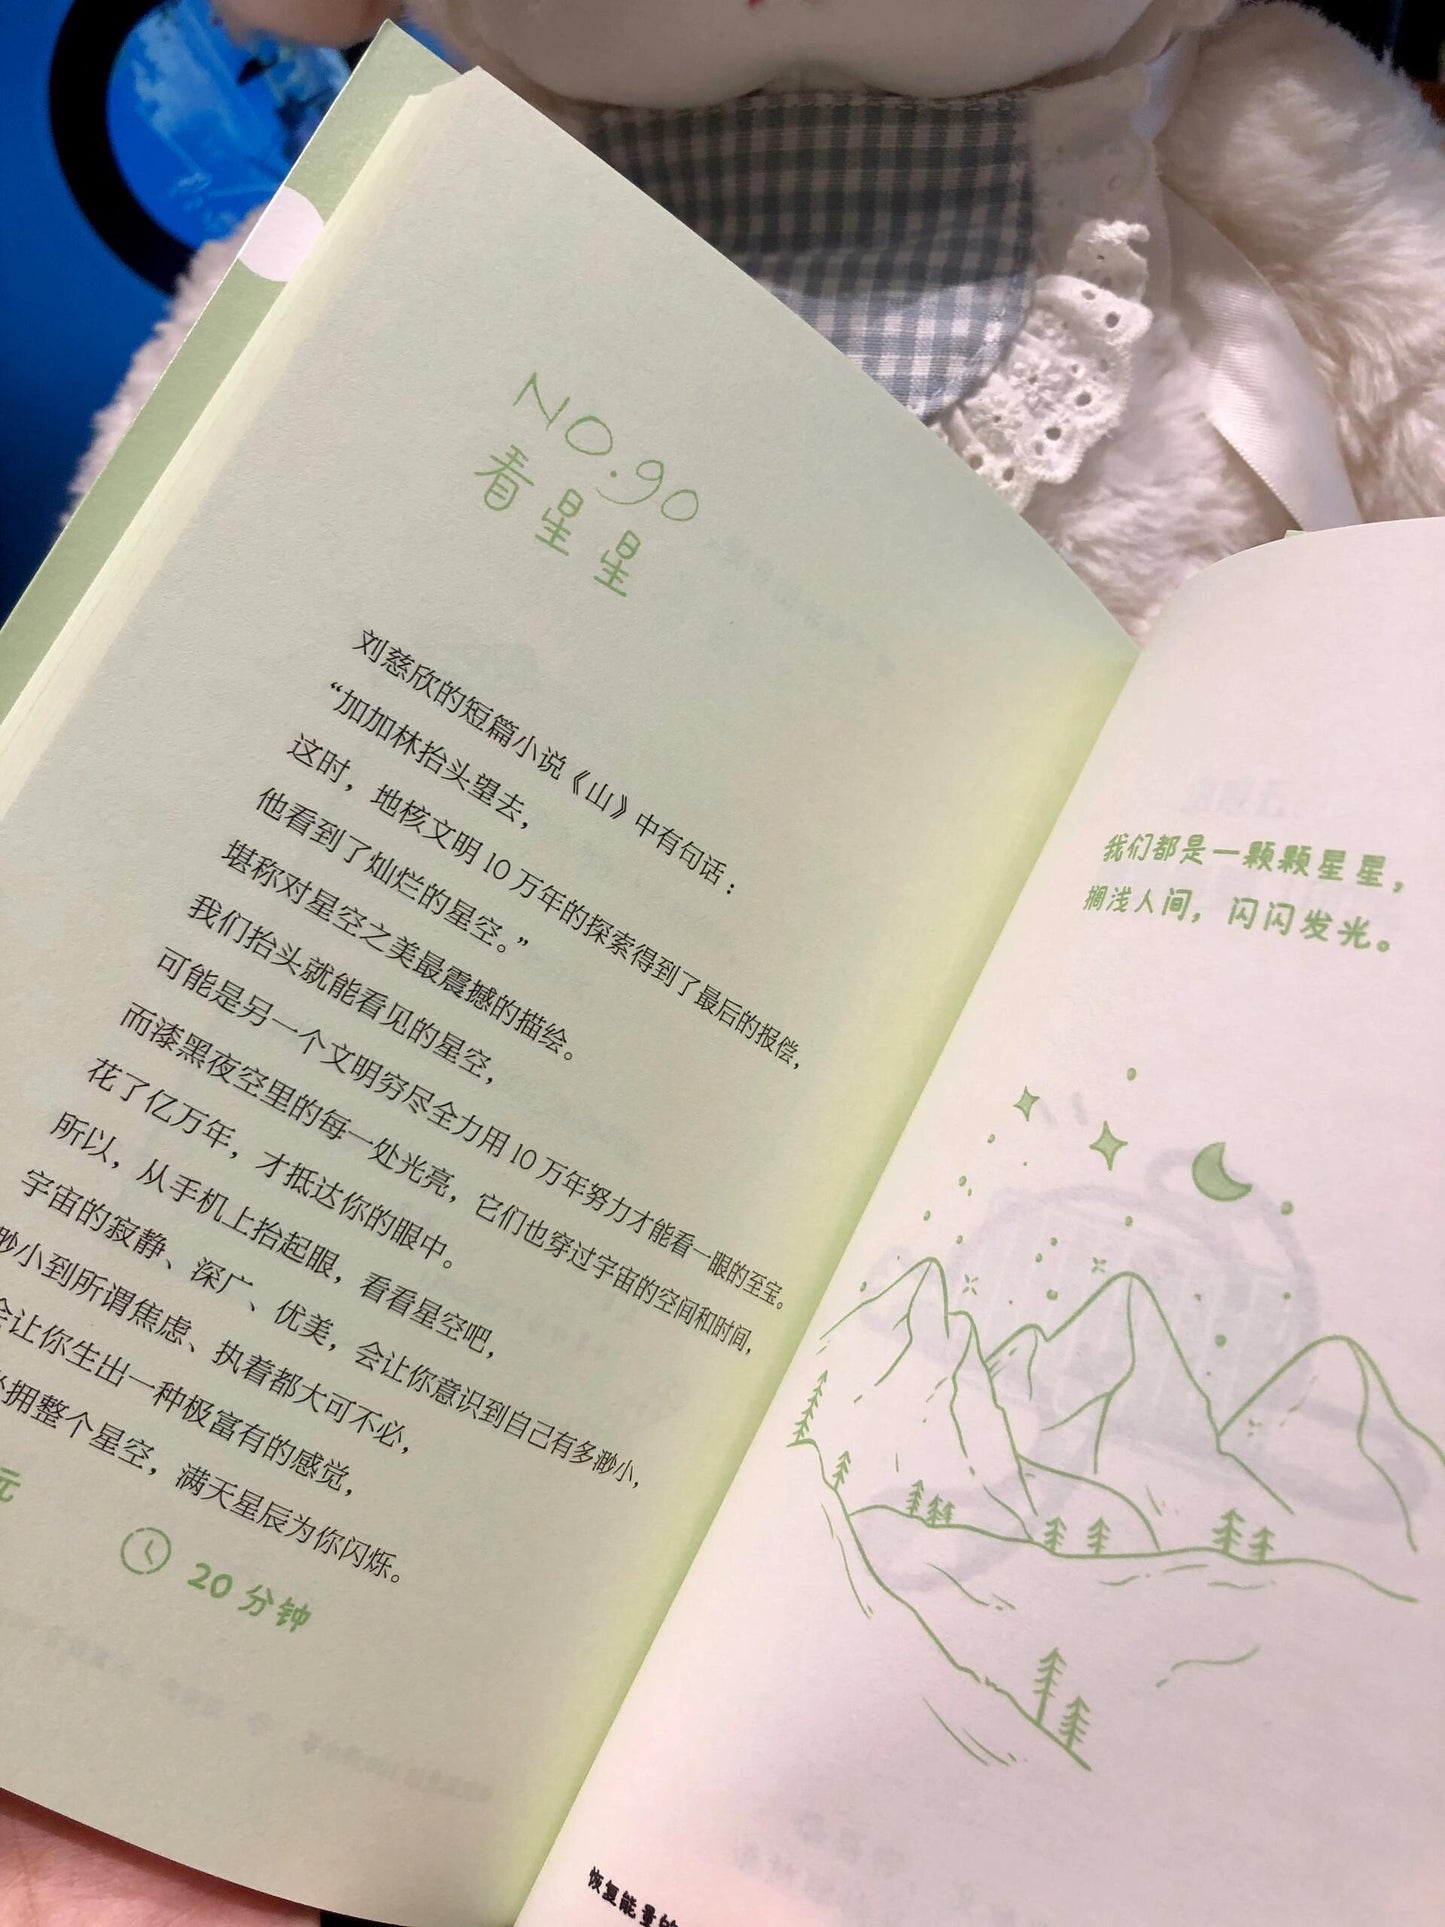 NO.90
看星星
刘慈欣的短篇小说《山》中有句话：
“加加林抬头望去，
这时，地核文明10万年的探索得到了最后的报偿，
他看到了灿烂的星空。”
堪称对星空之美最震撼的描绘。
我们抬头就能看见的星空，
可能是另一个文明穷尽全力用10万年努力才能看一眼的至宝。
而漆黑夜空里的每一处光亮，它们也穿过宇宙的空间和时间，
花了亿万年，才抵达你的眼中。
所以，从手机上抬起眼，看看星空吧，
宇宙的寂静、深广、优美，会让你意识到自己有多渺小，
渺小到所谓焦虑、执着都大可不必，
会让你生出一种极富有的感觉，
拥整个星空，满天星辰为你闪烁。
元
20分钟
我们都是一颗颗星星，
搁浅人间，闪闪发光。
恢复能量